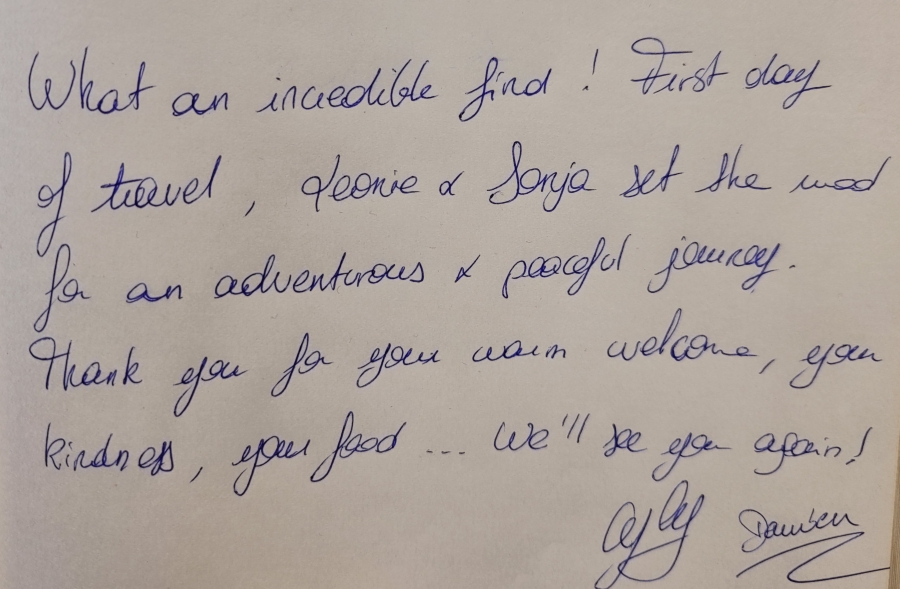 What an incredible find! First day
of travel, Leonie & Sonja set the mood
for an adventurous & peaceful journey.
Thank you for your warm welcome, your
kindness, your food ... We'll see you again!
Damien